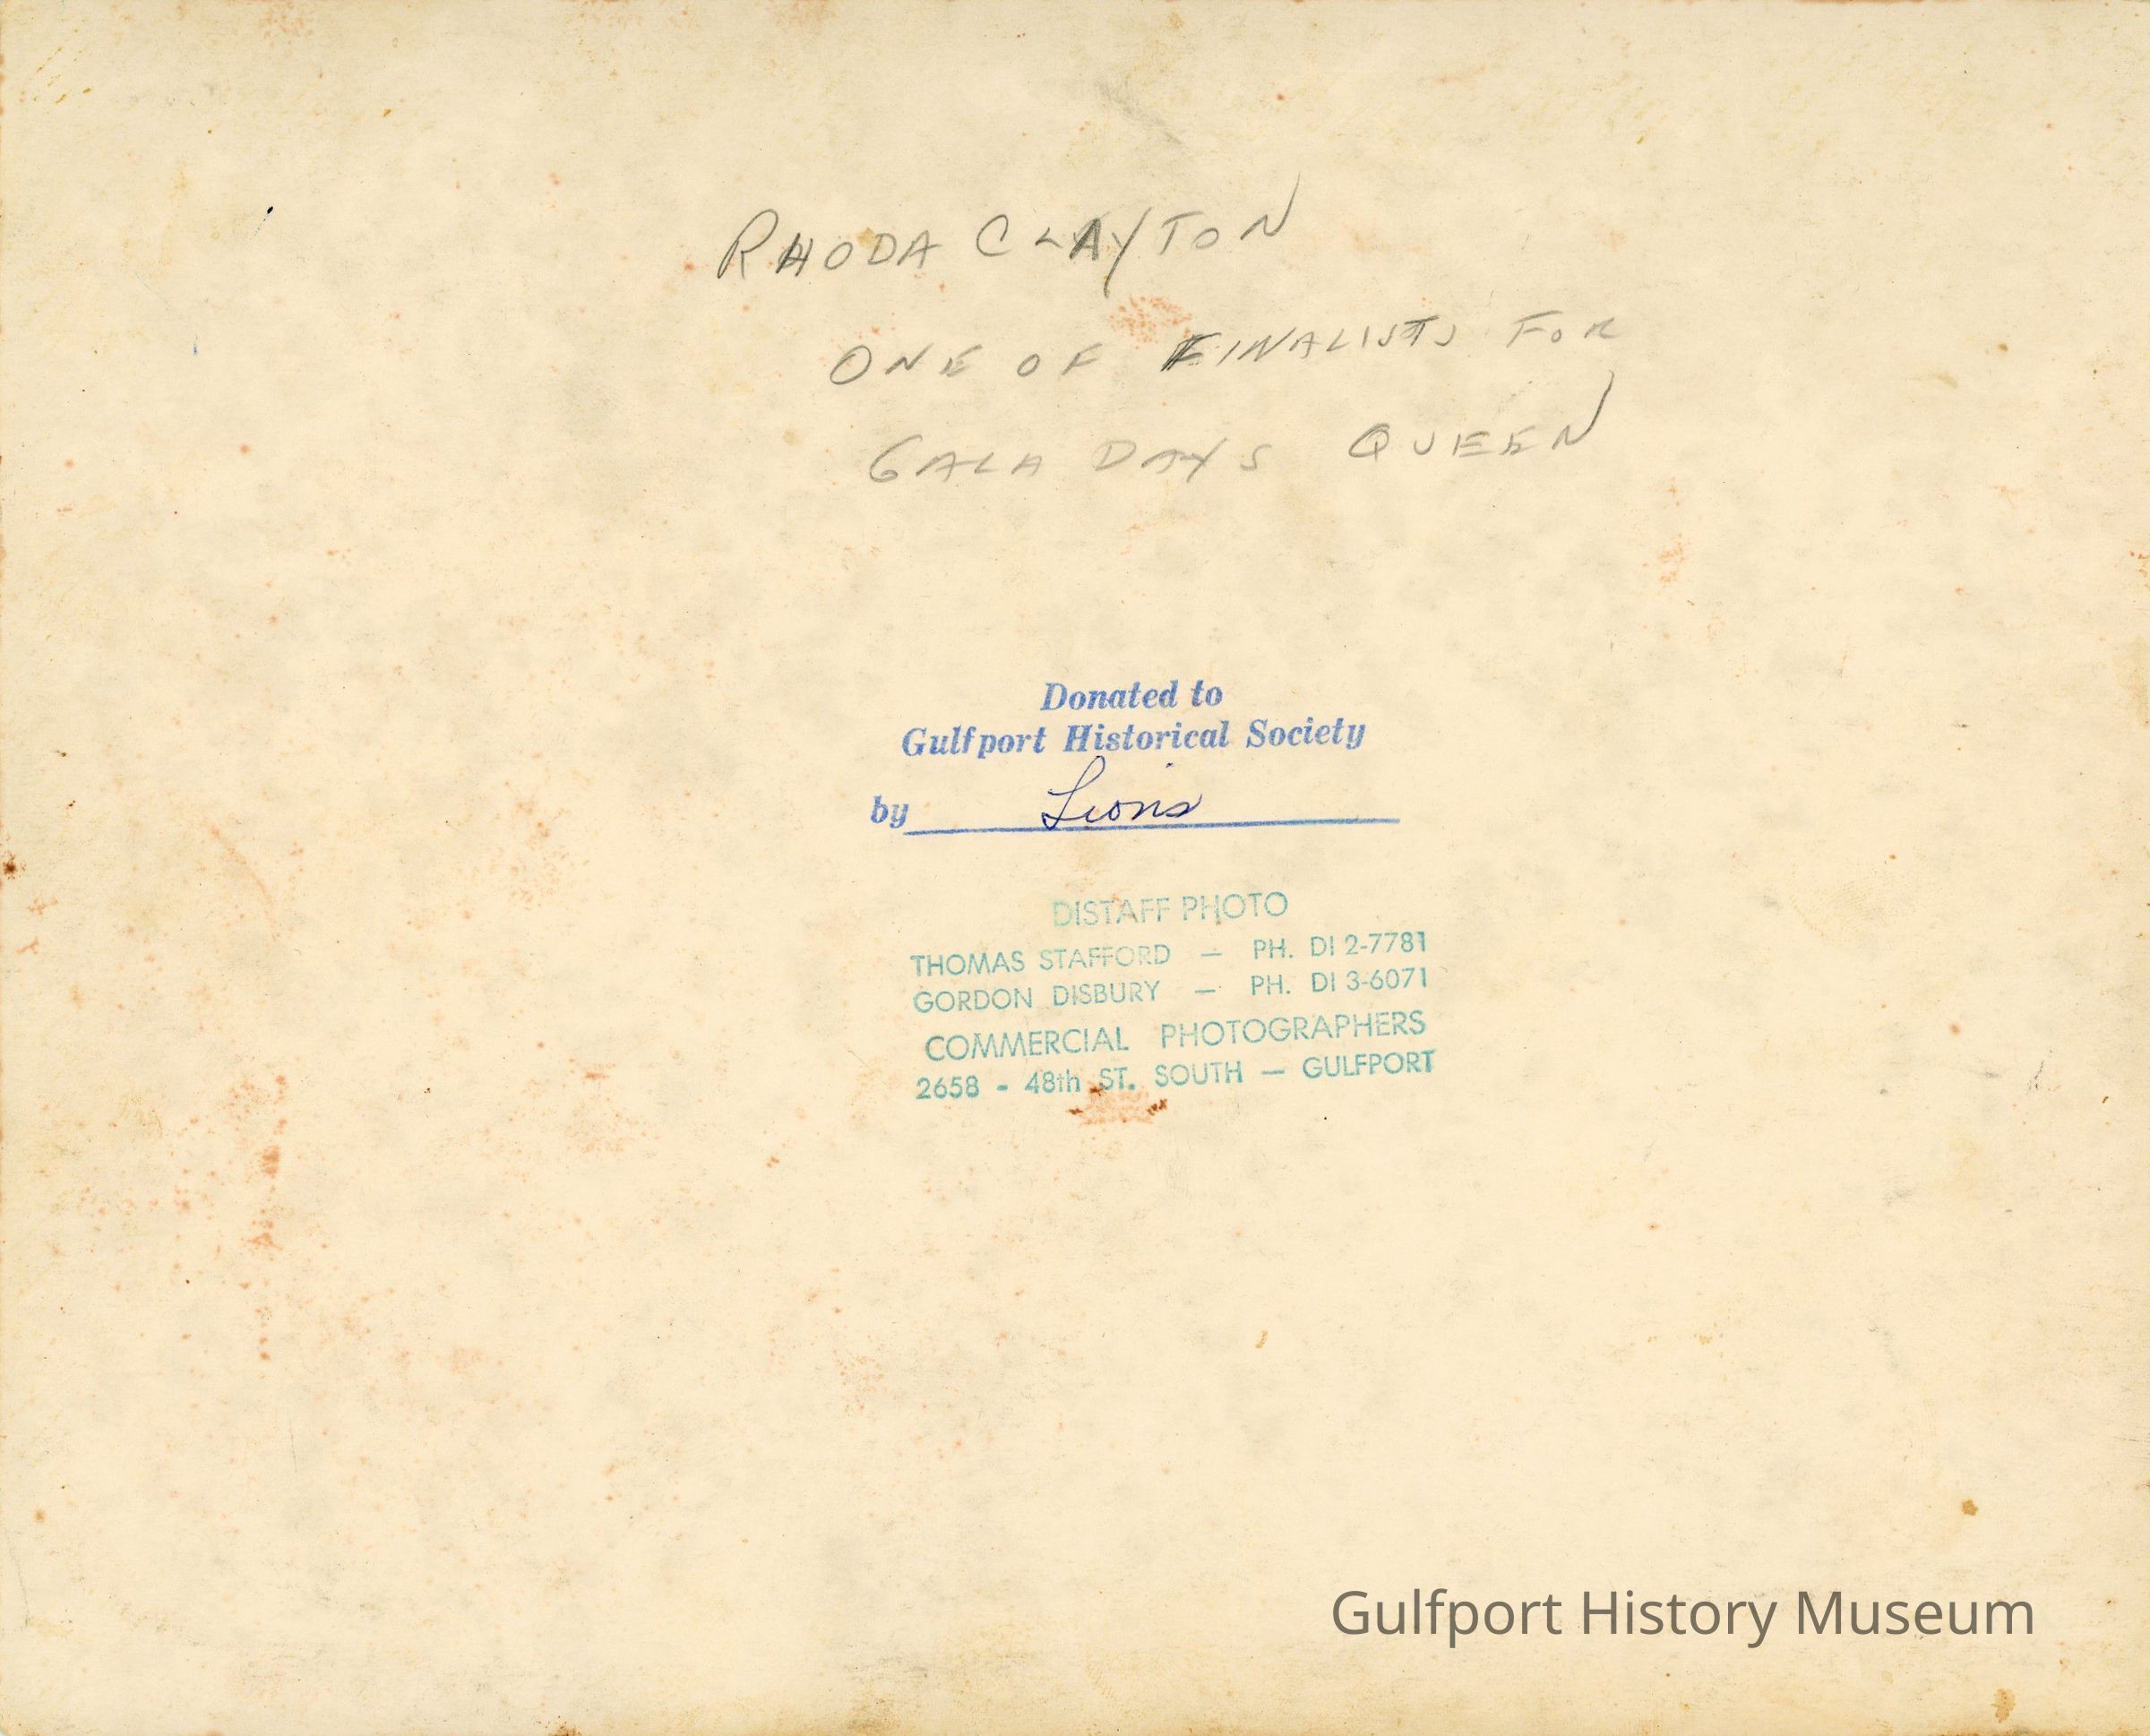 RHODA CLAYTON
ONE OF FINALISTS FOR
GALA DAYS QUEEN
Donated to
Gulfport Historical Society
by Lions
DISTAFF PHOTO
THOMAS STAFFORD — PH. DI 2-7781
GORDON DISBURY — PH. DI 3-6071
COMMERCIAL PHOTOGRAPHERS
2658 - 48th ST. SOUTH — GULFPORT
Gulfport History Museum